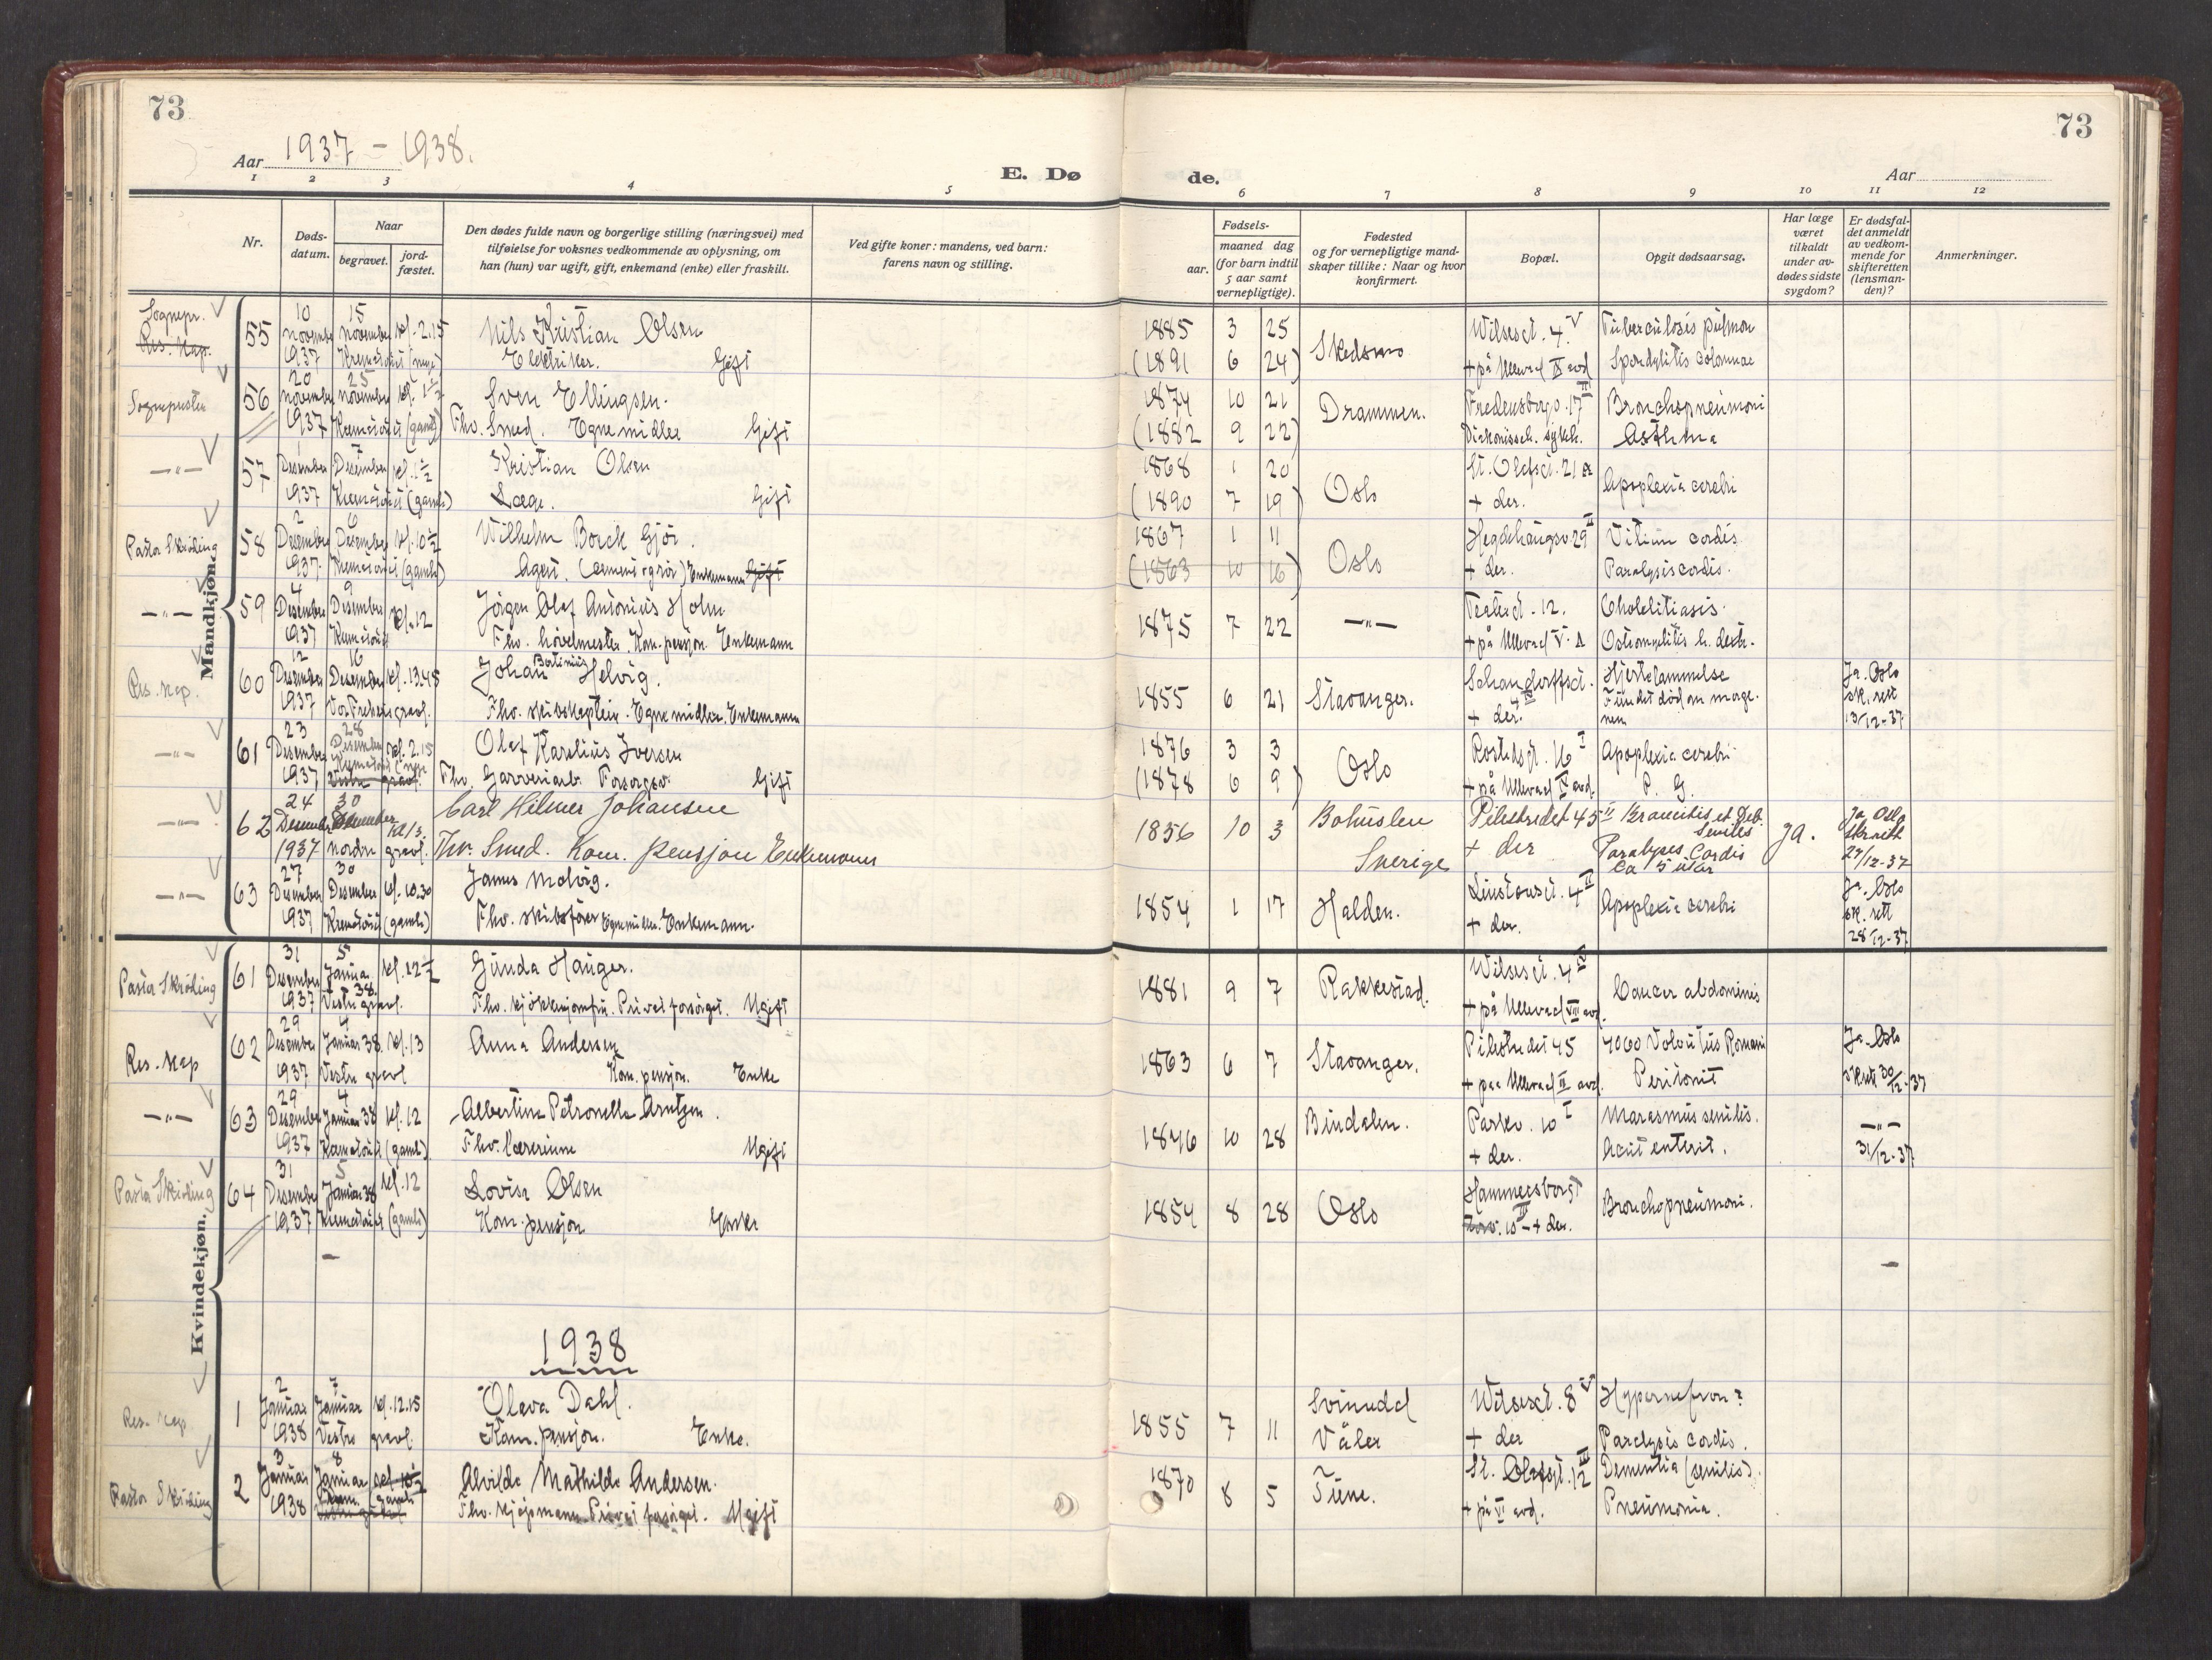 73
Aar 1937 - 1938.
E. Dø
1 2 3 4 5
Nr.
Døds-datum.
Naar
begravet.
jord-fæstet.
Den dødes fulde navn og borgerlige stilling (næringsvei) med
tilføielse for voksnes vedkommende av oplysning, om
han (hun) var ugift, gift, enkemand (enke) eller fraskilt.
Ved gifte koner: mandens, ved barn:
farens navn og stilling.
Mandkjøn.
Sognepr.
Res. Kap.
55 10 November 1937 15 November Kl. 2.15
Nils Kristian Olsen
Elektriker. Gift
Sogneprest
56 20 November 1937 25 November
Sven Ellingsen.
Fhv. Smed. Egne midler Gift
—"—
57 1 Desember 1937 7 Desember
Kristian Olsen
Læge. Gift
Pastor Skirling
58 2 Desember 1937 6 Desember Kl. 10½
Wilhelm Borck Gjør.
Agent. Enkemann Gift
—"—
59 4 Desember 1937 9 Desember Kl. 12
Jørgen Olaf Antonius Holm
Fhv. høvelmester. Kom. pensjon. Enkemann
Res. Kap.
60 12 Desember 1937 16 Desember Kl. 13.45
Vor Frelsers gravl.
Johan Bertinius Helvig.
Fhv. skibskaptein. Egne midler. Enkemann
—"—
61 23 Desember 1937 28 Desember Kl. 2.15
Olaf Karelius Iversen
Fhv. Garveriarb. Forsorgsv. Gift
—"—
62 24 Desember 1937 30 Desember Kl. 13.
Nordre gravl.
Carl Helmer Johansen
Fhv. Smed. Kom. pensjon Enkemann
—"—
63 27 Desember 1937 30 Desember Kl. 10.30
Krematoriet (gamle)
James Molvig.
Fhv. skibsfører Egne midler. Enkemann.
Kvindekjøn.
Pastor Skirling
61 31 Desember 1937 5 Januar 38. Kl. 12½
Vestre gravl.
Gunda Hauger.
Fhv. kjøkkenjomfru. Privat forsørget. Ugift
Res. Kap
62 29 Desember 1937 4 Januar 38. Kl. 13
Vestre gravl
Anna Andersen
Kom. pensjon. Enke
—"—
63 29 Desember 1937 4 Januar 38 Kl. 12
Krematoriet (gamle)
Albertine Petronelle Arntzen.
Fhv. lærerinne Ugift
Pastor Skirling
64 31 Desember 1937 5 Januar 38 Kl. 12
Krematoriet (gamle)
Lovise Olsen
Kom. pensjon Enke
1938
Res. Kap.
1 2 Januar 1938 7 Januar Kl. 12.15
Vestre gravl.
Olava Dahl.
Kom. pensjon. Enke.
Pastor Skirling
2 3 Januar 1938 8 Januar
Alvilde Mathilde Andersen.
Fhv. kjøpmann. Privat forsørget. Ugift
73
de.
Aar
6 7 8 9 10 11 12
Fødsels-
aar.
maaned dag
(for barn indtil
5 aar samt
vernepligtige).
Fødested
og for vernepligtige mand-
skaper tillike: Naar og hvor
konfirmert.
Bopæl.
Opgit dødsaarsag.
Har læge
været
tilkaldt
under av-
dødes sidste
sygdom?
Er dødsfal-
det anmeldt
av vedkom-
mende for
skifteretten
(lensman-
den)?
Anmerkninger.
1885 3 25 Skedsmo Wilsesgt. 4 V Tuberculosis pulmon
(1891 6 24) + på Ullevaal IX avd Spondylitis columnae
1874 10 21 Drammen. Fredensborgv. 17 III Bronchopneumoni
(1882 9 22) Diakonisseh. sykeh. Asthma
1868 1 20 Oslo St. Olafsgt. 21 a Apoplexia cerebri
(1890 7 19) + der.
1867 1 11 Oslo Hegdehaugsv. 29 II Vitium cordis
(1863 10 16) + der. Paralysis cordis.
1875 7 22 —"— Teatergt. 12. Cholelitiasis.
+ på Ullevaal V. A Osteomyelitis h. dextr.
1855 6 21 Stavanger. Schandorffsgt. Hjertelammelse Ja. Oslo
+ der. Funnet død om morge- sk. rett
nen 13/12-37
1876 3 3 Oslo Rostedsgt. 16 I Apoplexia cerebri
(1878 6 9) + på Ullevaal IV avd P. G.
1856 10 3 Bohuslen Pilestredet 45 II Broncitis et Deb. Ja. Oslo
Sverige + der Seniles Ja. Skrett
Paralyses Cordis 27/12-37
Ca 5 uker
1854 1 17 Halden. Linstowsgt. 4 II Apoplexia cerebri Ja. Oslo
+ der. sk. rett
28/12-37
1881 9 7 Rakkestad. Wilsesgt. 4 IV Cancer abdominis
+ på Ullevaal VIII avd.
1863 6 7 Stavanger. Pilestredet 45 Volvulus Ja. Oslo
+ paa Ullevaal II avd. Peritonit Skrett 30/12-37
1846 10 28 Bindalen. Parkv. 10 I Marasmus senilis. —"—
+ der. Acut enterit. 31/12-37
1854 8 28 Oslo Hammersborgt Bronchopneumoni.
10 III + der.
1855 7 11 Svinndal Wilsesgt. 8 IV Hypernefrom?
Våler + der Paralysis cordis.
1870 8 5 Tune. St. Olafsgt. 12 III Dementia (senilis).
+ på VI avd. Pneumonia.